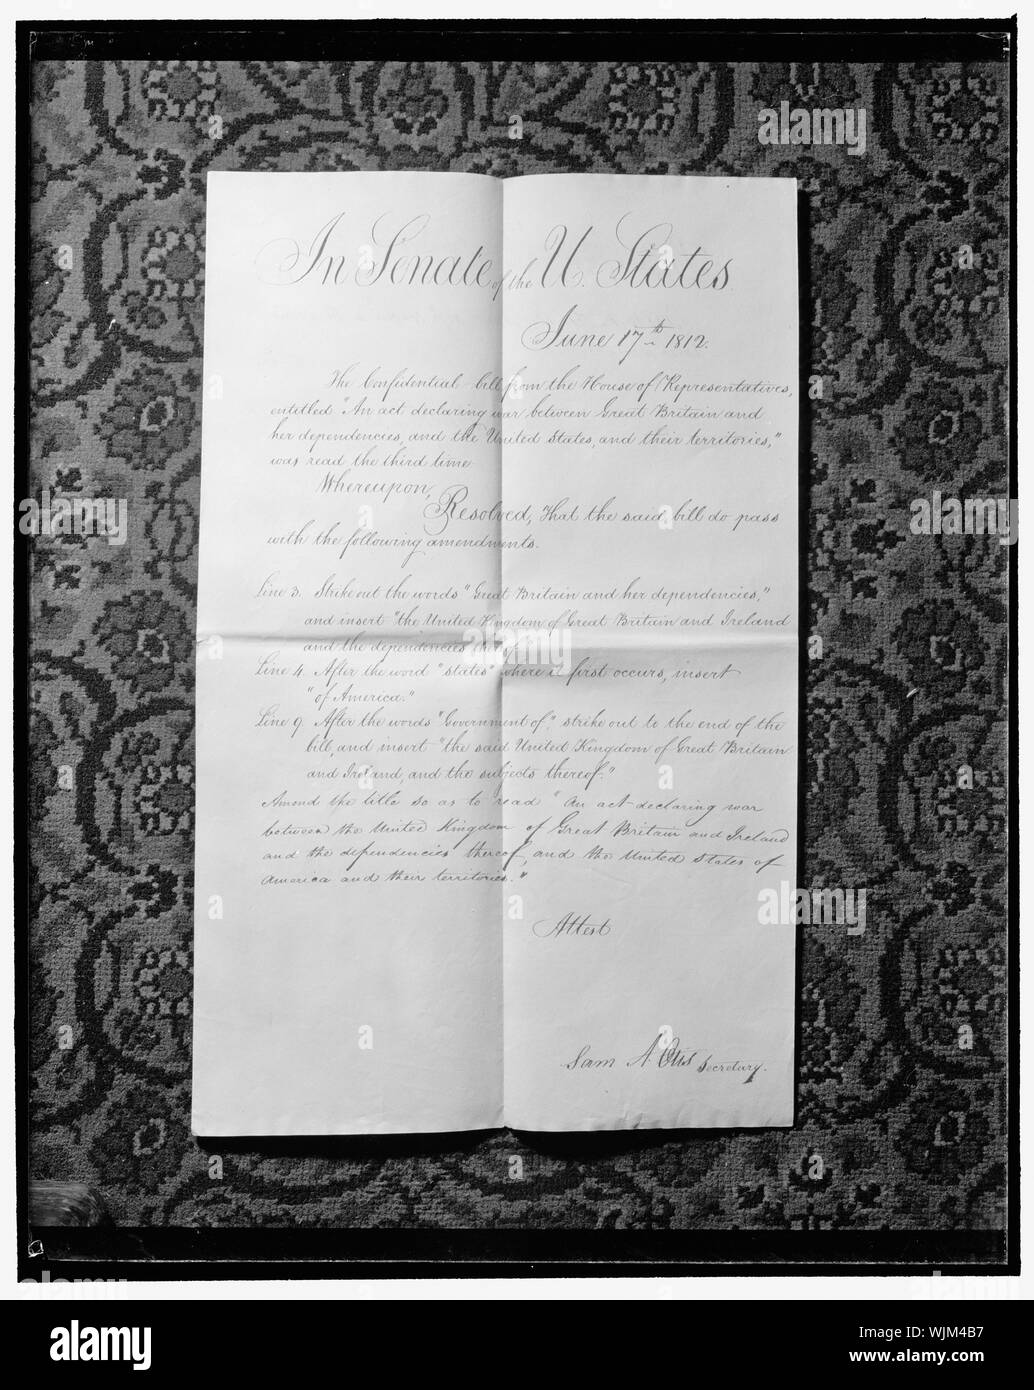 In Senate of the U. States.
June 17th 1812.
The Confidential bill from the House of Representatives,
entitled "An act declaring war between Great Britain and
her dependencies, and the United States, and their territories,"
was read the third time
Whereupon,
Resolved, That the said bill do pass
with the following amendments.
Line 3. Strike out the words "Great Britain and her dependencies,"
and insert "the United Kingdom of Great Britain and Ireland
and the dependencies thereof"
Line 4. After the word "states" where it first occurs, insert
"of America."
Line 9. After the words "Government of," strike out to the end of the
bill, and insert "the said United Kingdom of Great Britain
and Ireland, and the subjects thereof."
Amend the title so as to read "An act declaring war
between the United Kingdom of Great Britain and Ireland
and the dependencies thereof, and the United States of
America and their territories."
Attest
Sam A. Otis Secretary.
alamy
alamy
Image ID: WJM4B7
www.alamy.com